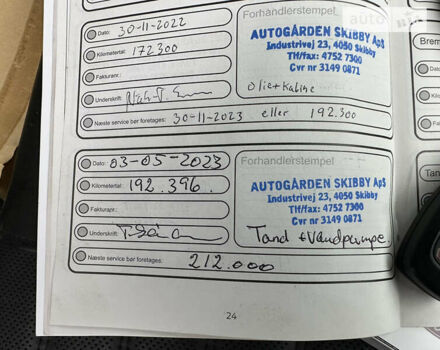 Dato: 30-11-2022
Forhandlerstempel
Kilometertal: 172300
AUTOGÅRDEN SKIBBY ApS
Industrivej 23, 4050 Skibby
Tlf/fax: 4752 7300
Cvr nr 3149 0871
Fakturanr.:
Underskrift:
Olie + Kabine
Næste service bør foretages: 30-11-2023 eller 192.300
Dato: 03-05-2023
Forhandlerstempel
Kilometertal: 192.396.
AUTOGÅRDEN SKIBBY ApS
Industrivej 23, 4050 Skibby
Tlf/fax: 4752 7300
Cvr nr 3149 0871
Fakturanr.:
Underskrift:
Tand + Vandpumpe.
Næste service bør foretages:
212.000
24
Brem
Tand
auto